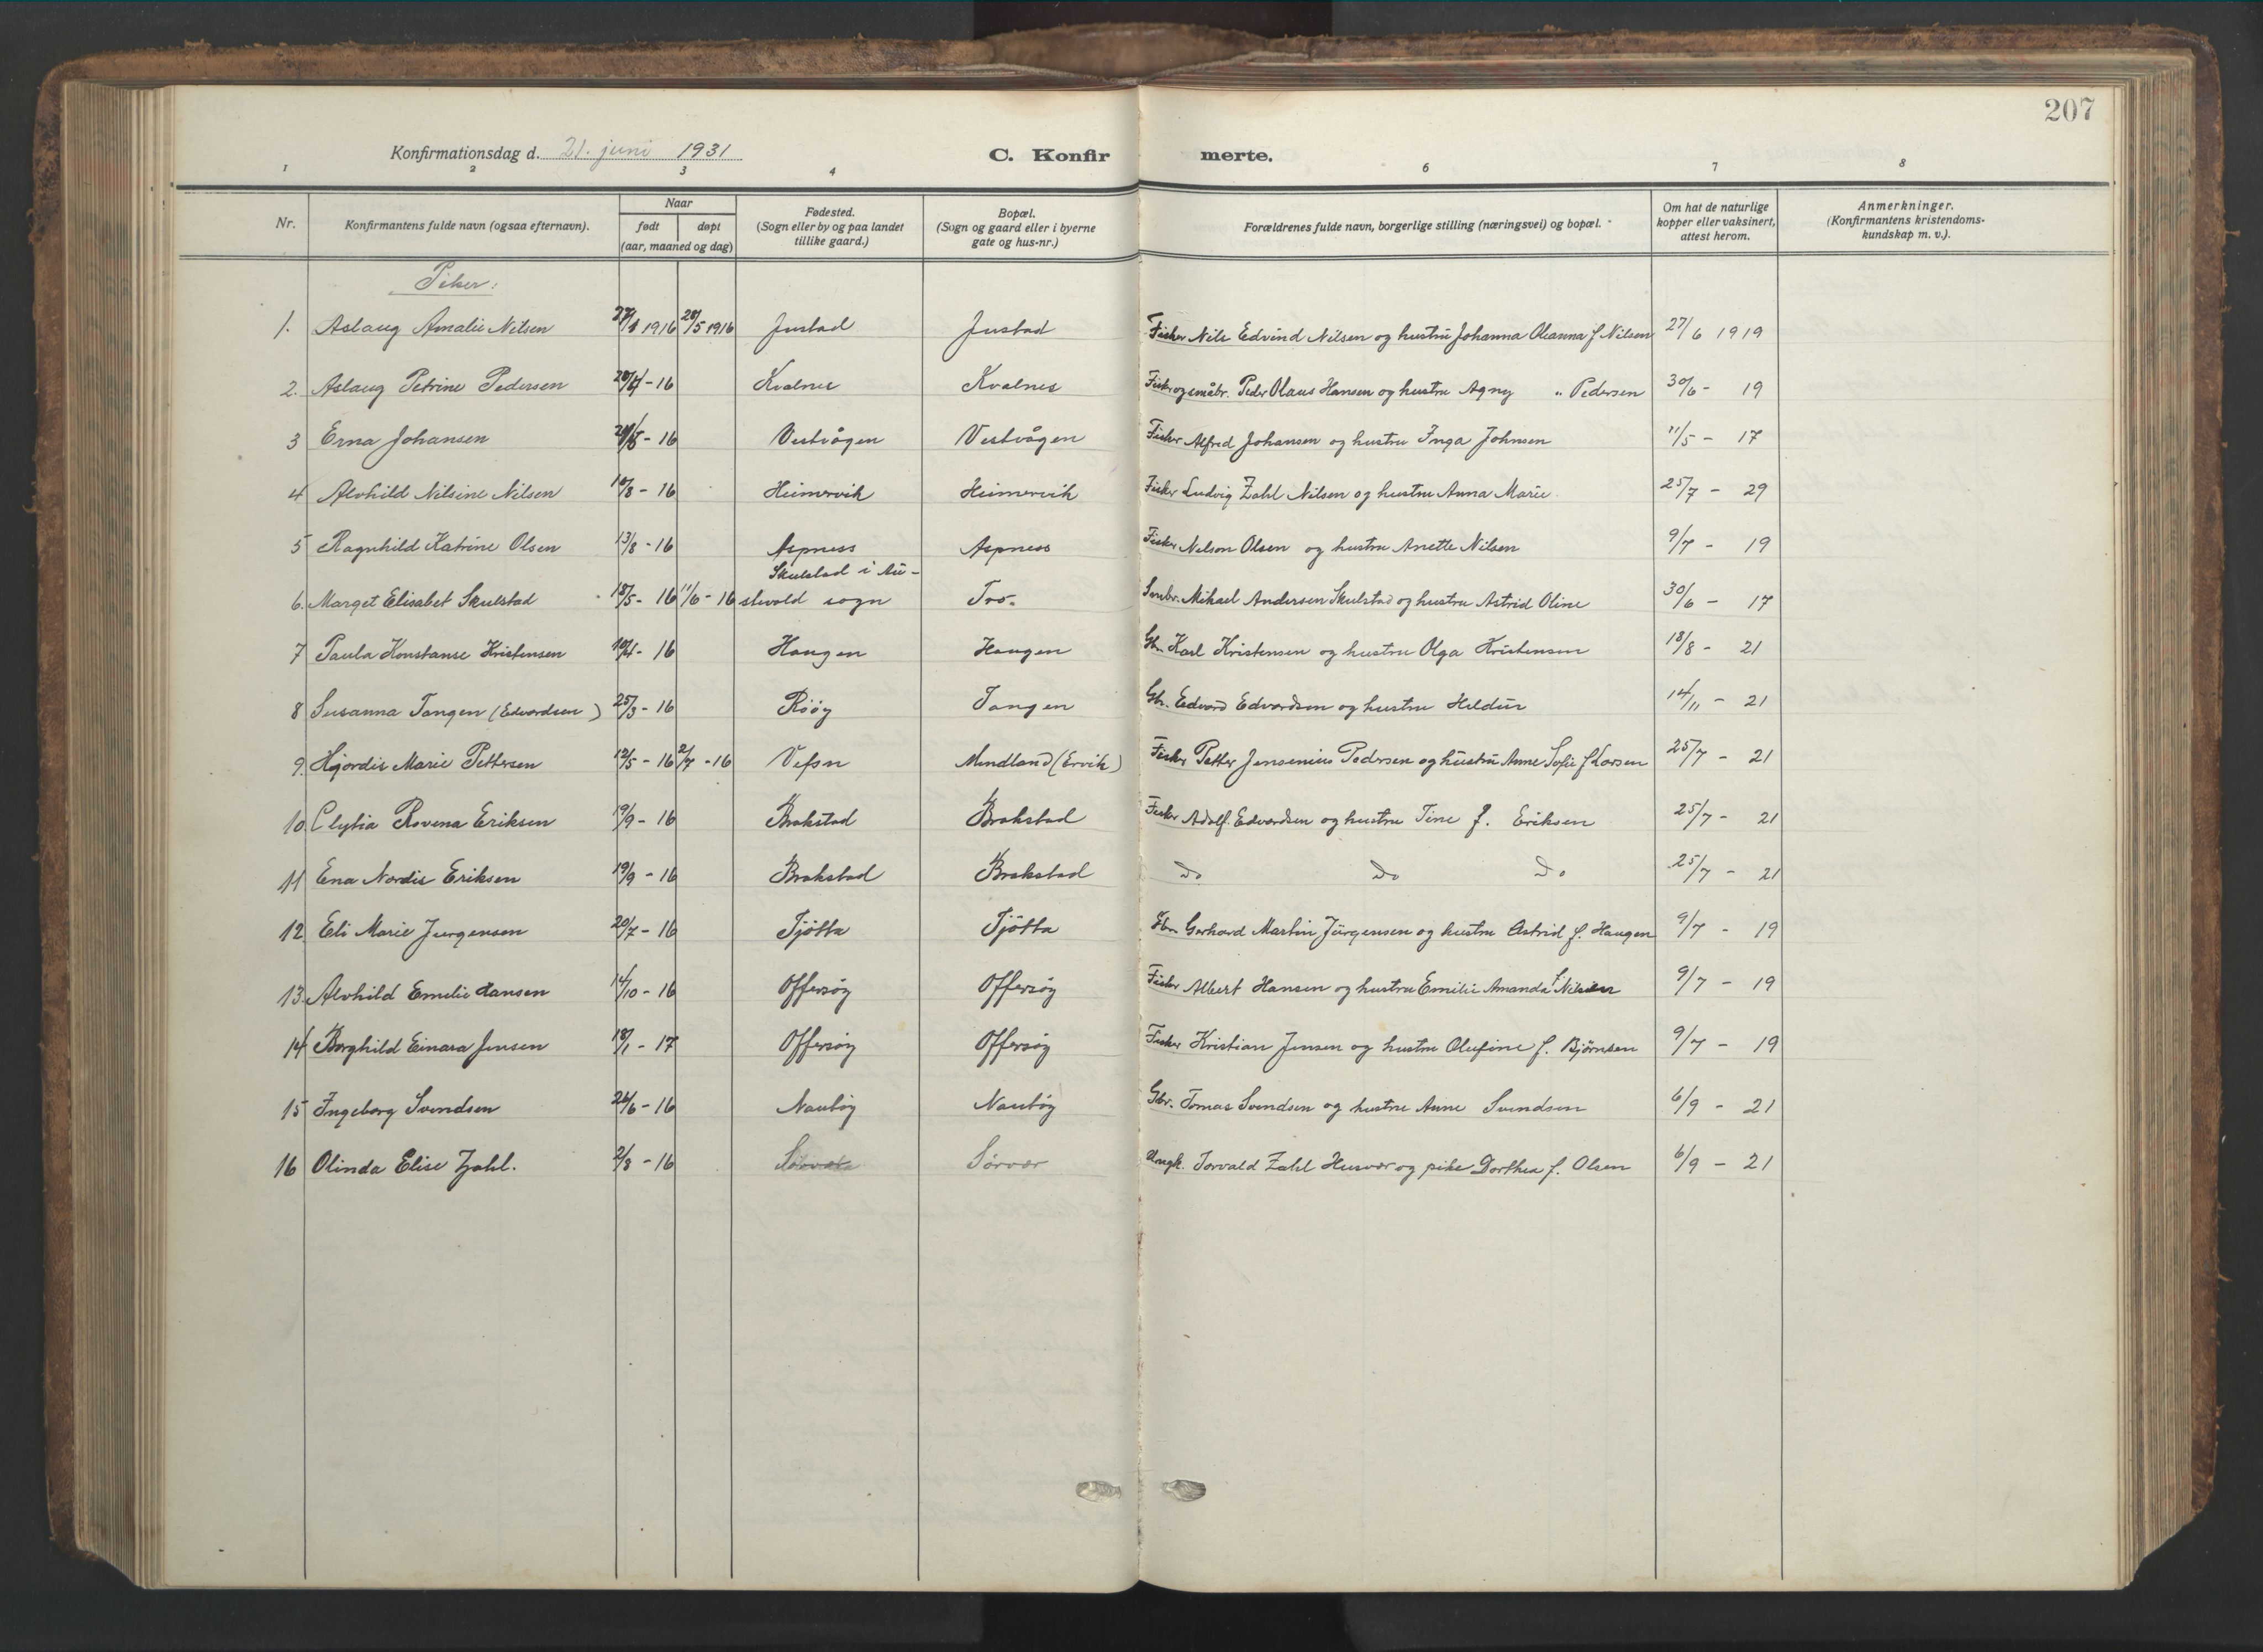 207
Konfirmationsdag d. 21. juni 1931
C. Konfirmerte.
1 2 3 4 6 7 8
Nr.
Konfirmantens fulde navn (ogsaa efternavn).
Naar
født døpt
(aar, maaned og dag)
Fødested.
(Sogn eller by og paa landet
tillike gaard.)
Bopæl.
(Sogn og gaard eller i byerne
gate og hus-nr.)
Forældrenes fulde navn, borgerlige stilling (næringsvei) og bopæl.
Om hat de naturlige
kopper eller vaksinert,
attest herom.
Anmerkninger.
(Konfirmantens kristendoms-
kundskap m. v.).
Piker:
1. Aslaug Amalie Nilsen 1916 28/5 1916 Justad Justad Fisker Nils Edvind Nilsen og hustru Johanna Oleanna f Nilsen 27/6 1919
2. Aslaug Petrine Pedersen - 16 Kvalnes Kvalnes Fisker og småbr. Peder Olaus Hansen og hustru Agny " Pedersen 30/6 - 19
3 Erna Johansen - 16 Vestvågen Vestvågen Fisker Alfred Johansen og hustru Inga Johnsen 11/5 - 17
4 Alvhild Nilsine Nilsen 10/8 - 16 Heimervik Heimervik Fisker Ludvig Zahl Nilsen og hustru Anna Marie 25/7 - 29
5 Ragnhild Katrine Olsen 13/8 - 16 Aspness Aspness Fisker Nelson Olsen og hustru Anette Nilsen 9/7 - 19
Skulstad i Au-
6. Marget Elisabet Skulstad 18/5 - 16 11/6 - 16 stvold sogn Tro. Småbr. Mikael Andersen Skulstad og hustru Astrid Oline 30/6 - 17
7 Paula Konstanse Kristensen - 16 Haugen Haugen Gbr. Karl Kristensen og hustru Olga Kristensen 18/8 - 21
8 Susanna Tangen (Edvardsen) 25/3 - 16 Røøy Tangen Gbr. Edvard Edvardsen og hustru Heldur 14/11 - 21
9. Hjørdis Marie Pettersen 12/5 - 16 2/7 - 16 Vefsn Mindland (Ervik) Fisker Petter Jensenius Pedersen og hustru Anne Sofie f Larsen 25/7 - 21
10. Clytia Rovena Eriksen 19/9 - 16 Brakstad Brakstad Fisker Adolf Edvardsen og hustru Tine f. Eriksen 25/7 - 21
11 Ena Nordis Eriksen 19/9 - 16 Brakstad Brakstad Do Do Do 25/7 - 21
12. Eli Marie Jurgensen 20/7 - 16 Tjøtta Tjøtta Gbr. Gerhard Martin Jürgensen og hustru Astrid f. Haugen 9/7 - 19
13. Alvhild Emelie Hansen 14/10 - 16 Offersøy Offersøy Fisker Albert Hansen og hustru Emilie Amanda f. Nilsen 9/7 - 19
14 Borghild Einara Jensen 18/1 - 17 Offersøy Offersøy Fisker Kristian Jensen og hustru Olufine f. Bjørnsen 9/7 - 19
15 Ingeborg Svendsen 26/6 - 16 Nautøy Nautøy Gbr. Tomas Svendsen og hustru Anne Svendsen 6/9 - 21
16 Olinda Elise Zahl. 2/8 - 16 Sørvær Ungk. Torvald Zahl Husvær og pike Dorthea f. Olsen 6/9 - 21